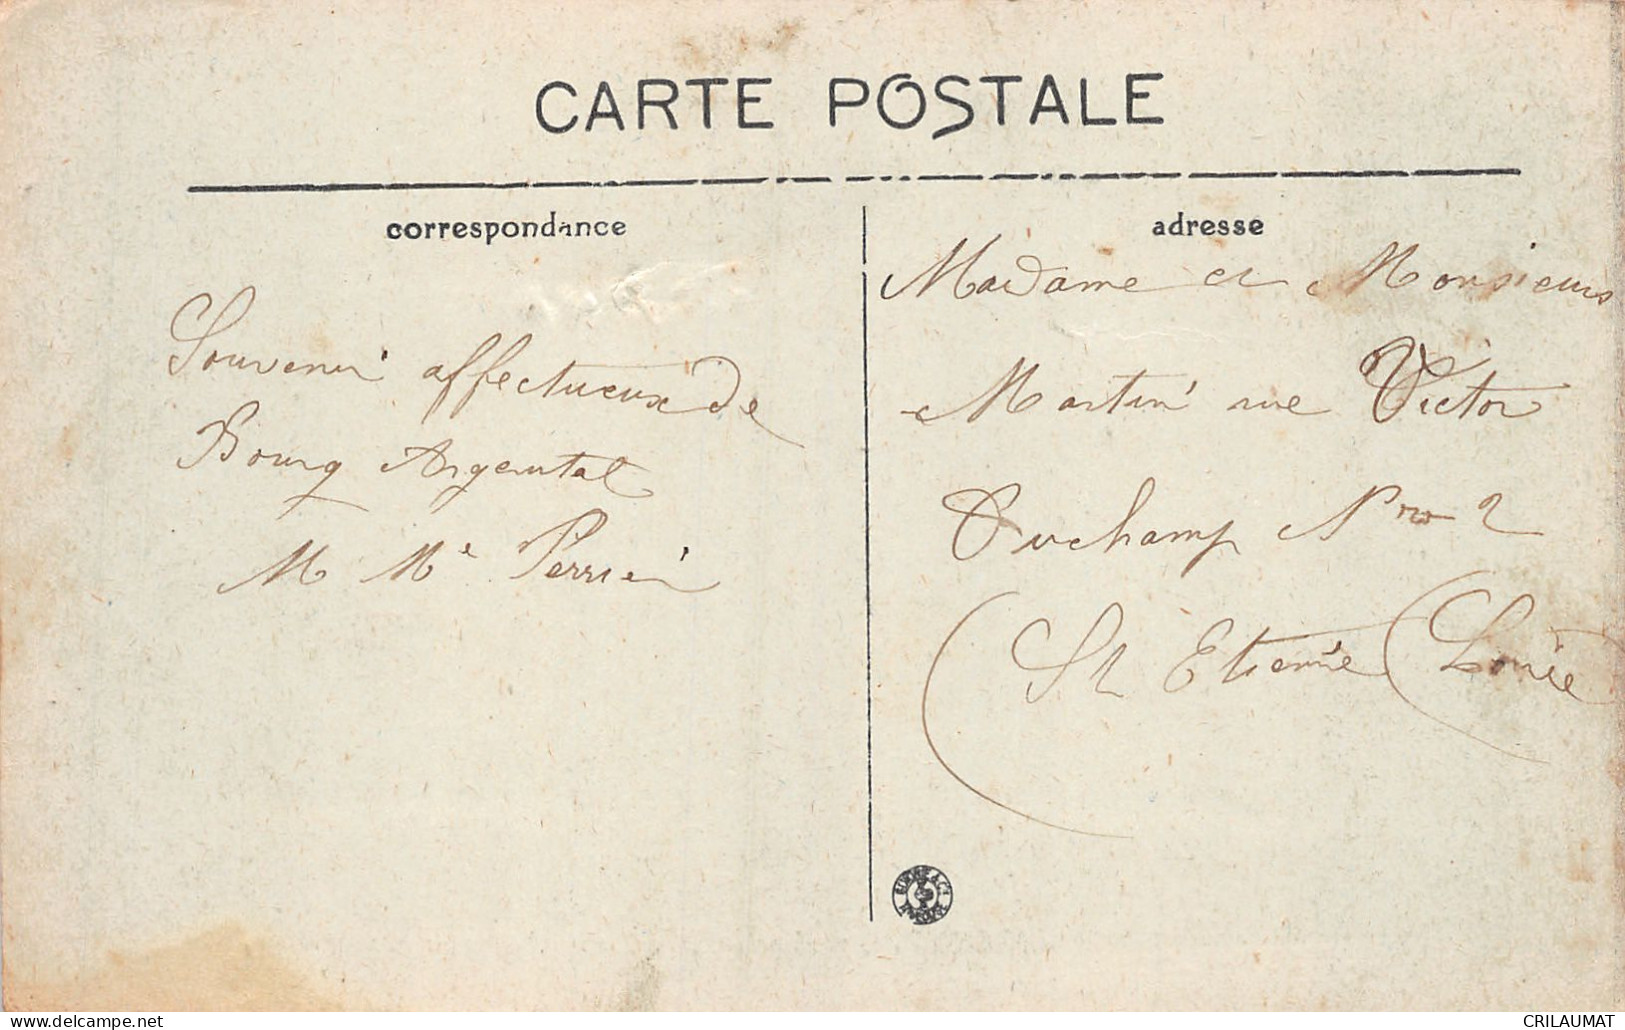 CARTE POSTALE
correspondance
Souvenir affectueux de
Bourg Argental
M Me Perrier
adresse
Madame et Monsieurs
Martin rue Victor
Duchamp Nro 2
(St Etienne (Loire
www.delcampe.net
CRILAUMAT